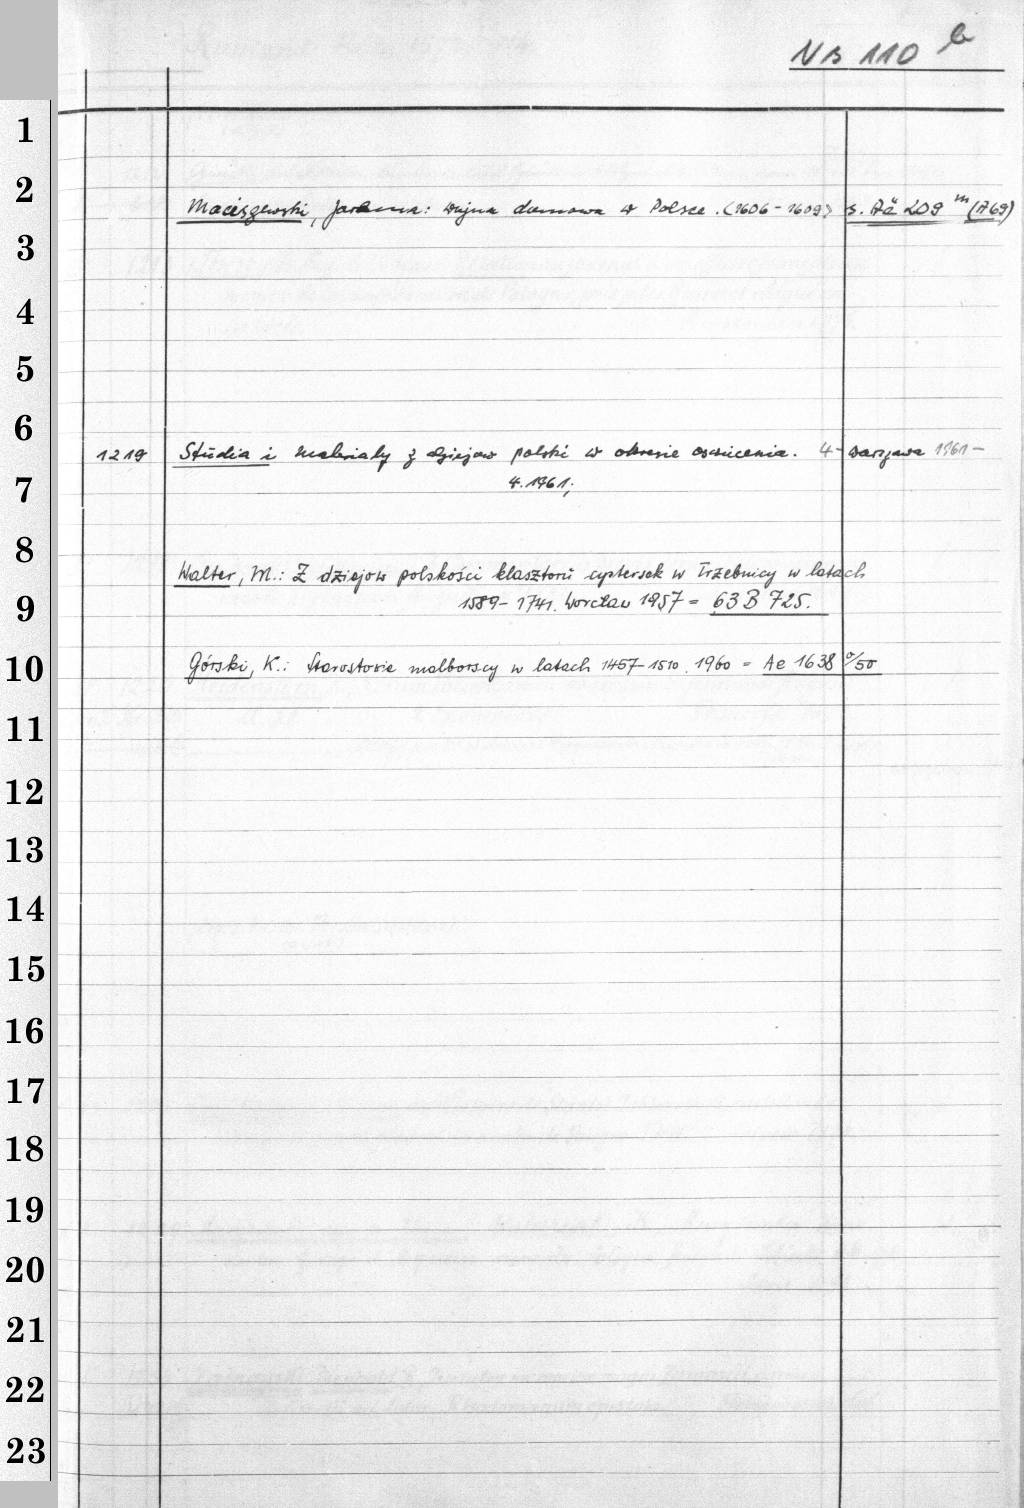 NB 110 b
1
2
Maciszewski, Jarema: Wojna domowa w Polsce. (1606-1609) s. Ač 209 m (A69)
3
4
5
6
1219 Studia i materiały z dziejow polski w okresie oswiecenia. 4- Warszawa 1961-
7
4.1961;
8
Walter, M.: Z dziejow polskości klasztorü cystersek w Trzebnicy w latach
9
1589-1741. Worcław 1957 = 63 B 725.
10
Górski, K.: Starostowie malborscy w latach 1457-1510. 1960 = Ae 1638 o/50
11
12
13
14
15
16
17
18
19
20
21
22
23